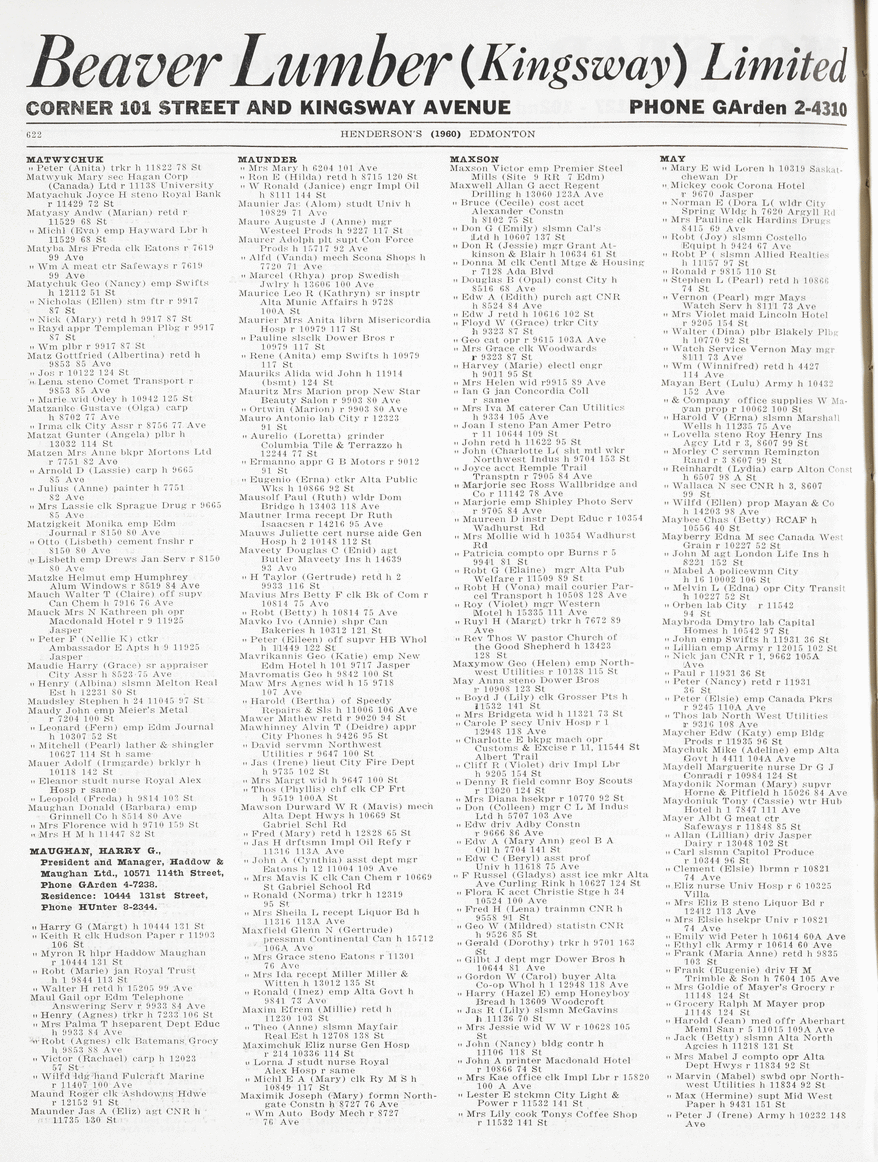 Beaver Lumber (Kingsway) Limited
CORNER 101 STREET AND KINGSWAY AVENUE PHONE GArden 2-4310
622 HENDERSON'S (1960) EDMONTON
MATWYCHUK
" Peter (Anita) trkr h 11822 78 St
Matwyuk Mary sec Hagan Corp
(Canada) Ltd r 11138 University
Matyachuk Joyce H steno Royal Bank
r 11429 72 St
Matyasy Andw (Marian) retd r
11529 68 St
" Michl (Eva) emp Hayward Lbr h
11529 68 St
Matyba Mrs Freda clk Eatons r 7619
99 Ave
" Wm A meat ctr Safeways r 7619
99 Ave
Matychuk Geo (Nancy) emp Swifts
h 12112 51 St
" Nicholas (Ellen) stm ftr r 9917
87 St
" Nick (Mary) retd h 9917 87 St
" Rayd appr Templeman Plbg r 9917
87 St
" Wm plbr r 9917 87 St
Matz Gottfried (Albertina) retd h
9853 85 Ave
" Jos r 10122 124 St
" Lena steno Comet Transport r
9853 85 Ave
" Marie wid Odey h 10942 125 St
Matzanke Gustave (Olga) carp
h 8702 77 Ave
" Irma clk City Assr r 8756 77 Ave
Matzat Gunter (Angela) plbr h
13032 114 St
Matzen Mrs Anne bkpr Mortons Ltd
r 7751 82 Ave
" Arnold D (Lassie) carp h 9665
85 Ave
" Julius (Anne) painter h 7751
82 Ave
" Mrs Lassie clk Sprague Drug r 9665
85 Ave
Matzigkeit Monika emp Edm
Journal r 8150 80 Ave
" Otto (Lisbeth) cement fnshr r
8150 80 Ave
" Lisbeth emp Drews Jan Serv r 8150
80 Ave
Matzke Helmut emp Humphrey
Alum Windows r 8519 84 Ave
Mauch Walter T (Claire) off supv
Can Chem h 7916 76 Ave
Mauck Mrs N Kathreen ph opr
Macdonald Hotel r 9 11925
Jasper
" Peter F (Nellie K) ctkr
Ambassador E Apts h 9 11925
Jasper
Maudie Harry (Grace) sr appraiser
City Assr h 8523 75 Ave
" Henry (Albina) slsmn Melton Real
Est h 12231 80 St
Maudsley Stephen h 24 11045 97 St
Maudy John emp Meier's Metal
r 7204 100 St
" Leonard (Fern) emp Edm Journal
h 10307 52 St
" Mitchell (Pearl) lather & shingler
10627 114 St h same
Mauer Adolf (Irmgarde) brklyr h
10118 142 St
" Eleanor studt nurse Royal Alex
Hosp r same
" Leopold (Freda) h 9814 103 St
Maughan Donald (Barbara) emp
Grinnell Co h 8514 80 Ave
" Mrs Florence wid h 9710 159 St
" Mrs H M h 11447 82 St
MAUGHAN, HARRY G.,
President and Manager, Haddow &
Maughan Ltd., 10571 114th Street,
Phone GArden 4-7238.
Residence: 10444 131st Street,
Phone HUnter 8-2344.
" Harry G (Margt) h 10444 131 St
" Keith R clk Hudson Paper r 11903
106 St
" Myron R hlpr Haddow Maughan
r 10444 131 St
" Robt (Marie) jan Royal Trust
h 1 9844 113 St
" Walter H retd h 15205 99 Ave
Maul Gail opr Edm Telephone
Answering Serv r 9933 84 Ave
" Henry (Anna) trkr h 7233 106 St
" Mrs Palma T hseparent Dept Educ
h 9933 84 Ave
" Robt (Agnes) clk Batemans Grocy
h 9853 88 Ave
" Victor (Rachael) carp h 12023
57 St
" Wilfd ldg hand Fulcraft Marine
r 11407 100 Ave
Maund Roger clk Ashdowns Hdwe
r 12152 91 St
Maunder Jas A (Eliz) agt CNR h
11735 130 St
MAUNDER
" Mrs Mary h 6204 101 Ave
" Ron E (Hilda) retd h 8715 120 St
" W Ronald (Janice) engr Impl Oil
h 8111 144 St
Maunier Jas (Alom) studt Univ h
10829 71 Ave
Mauro Auguste J (Anne) mgr
Westeel Prods h 9227 117 St
Maurer Adolph plt supt Con Force
Prods h 15717 92 Ave
" Alfd (Vanda) mech Scona Shops h
7720 71 Ave
" Marcel (Rhya) prop Swedish
Jwlry h 13606 100 Ave
Maurice Leo R (Kathryn) sr insptr
Alta Munic Affairs h 9728
100A St
Maurier Mrs Anita librn Misericordia
Hosp r 10979 117 St
" Pauline slsclk Dower Bros r
10979 117 St
" Rene (Anita) emp Swifts h 10979
117 St
Mauriks Alida wid John h 11914
(bsmt) 124 St
Mauritz Mrs Marion prop New Star
Beauty Salon r 9903 80 Ave
" Ortwin (Marion) r 9903 80 Ave
Mauro Antonio lab City r 12323
91 St
" Aurelio (Loretta) grinder
Columbia Tile & Terrazzo h
12244 77 St
" Ermanno appr G B Motors r 9012
91 St
" Eugenio (Erna) ctkr Alta Public
Wks h 10866 92 St
Mausolf Paul (Ruth) wldr Dom
Bridge h 13403 118 Ave
Mautner Irma recept Dr Ruth
Isaacsen r 14216 95 Ave
Mauws Juliette cert nurse aide Gen
Hosp h 2 10148 112 St
Maveety Douglas C (Enid) agt
Butler Maveety Ins h 14639
93 Avo
" H Taylor (Gertrude) retd h 2
9933 116 St
Mavius Mrs Betty F clk Bk of Com r
10814 75 Ave
" Robt (Betty) h 10814 75 Ave
Mavko Ivo (Annie) shpr Can
Bakeries h 10312 121 St
" Peter (Eileen) off supvr HB Whol
h 11449 122 St
Mavrikannis Geo (Katie) emp New
Edm Hotel h 101 9717 Jasper
Mavromatis Geo h 9842 100 St
Maw Mrs Agnes wid h 15 9718
107 Ave
" Harold (Bertha) of Speedy
Repairs & Sls h 11006 106 Ave
Mawer Mathew retd r 9020 94 St
Mawhinney Alvin T (Deidre) appr
City Phones h 9426 95 St
" David servmn Northwest
Utilities r 9647 100 St
" Jas (Irene) lieut City Fire Dept
h 9735 102 St
" Mrs Margt wid h 9647 100 St
" Thos (Phyllis) chf clk CP Frt
h 9519 100A St
Mawson Durward W R (Mavis) mech
Alta Dept Hwys h 10669 St
Gabriel Schl Rd
" Fred (Mary) retd h 12828 65 St
" Jas H drftsmn Impl Oil Refy r
11316 113A Ave
" John A (Cynthia) asst dept mgr
Eatons h 12 11004 109 Ave
" Mrs Mavis K clk Can Chem r 10669
St Gabriel School Rd
" Ronald (Norma) trkr h 12319
95 St
" Mrs Sheila L recept Liquor Bd h
11316 113A Ave
Maxfield Glenn N (Gertrude)
pressmn Continental Can h 15712
106A Ave
" Mrs Grace steno Eatons r 11301
76 Ave
" Mrs Ida recept Miller Miller &
Witten h 13012 135 St
" Ronald (Inez) emp Alta Govt h
9841 73 Ave
Maxim Efrem (Millie) retd h
11230 103 St
" Theo (Anne) slsmn Mayfair
Real Est h 12708 138 St
Maximchuk Eliz nurse Gen Hosp
r 214 10336 114 St
" Lorna J studt nurse Royal
Alex Hosp r same
" Michl E A (Mary) clk Ry M S h
10849 117 St
Maximik Joseph (Mary) formn North-
gate Constn h 8727 76 Ave
" Wm Auto Body Mech r 8727
76 Ave
MAXSON
Maxson Victor emp Premier Steel
Mills (Site 9 RR 7 Edm)
Maxwell Allan G acct Regent
Drilling h 13060 123A Ave
" Bruce (Cecile) cost acct
Alexander Constn
h 8102 75 St
" Don G (Emily) slsmn Cal's
Ltd h 10607 137 St
" Don R (Jessie) mgr Grant At-
kinson & Blair h 10634 61 St
" Donna M clk Centl Mtge & Housing
r 7128 Ada Blvd
" Douglas B (Opal) const City h
8516 68 Ave
" Edw A (Edith) purch agt CNR
h 8524 84 Ave
" Edw J retd h 10616 102 St
" Floyd W (Grace) trkr City
h 9323 87 St
" Geo cat opr r 9615 103A Ave
" Mrs Grace clk Woodwards
r 9323 87 St
" Harvey (Marie) electl engr
h 9011 95 St
" Mrs Helen wid r9915 89 Ave
" Ian G jan Concordia Coll
r same
" Mrs Iva M caterer Can Utilities
h 9334 105 Ave
" Joan I steno Pan Amer Petro
r 11 10644 109 St
" John retd h 11622 95 St
" John (Charlotte L( sht mtl wkr
Northwest Indus h 9704 153 St
" Joyce acct Remple Trail
Transptn r 7905 84 Ave
" Marjorie sec Ross Wallbridge and
Co r 11142 78 Ave
" Marjorie emp Shipley Photo Serv
r 9705 84 Ave
" Maureen D instr Dept Educ r 10354
Wadhurst Rd
" Mrs Mollie wid h 10354 Wadhurst
Rd
" Patricia compto opr Burns r 5
9941 81 St
" Robt G (Elaine) mgr Alta Pub
Welfare r 11509 89 St
" Robt H (Vona) mail courier Par-
cel Transport h 10508 128 Ave
" Roy (Violet) mgr Western
Motel h 15335 111 Ave
" Ruyl H (Margt) trkr h 7672 89
Ave
" Rev Thos W pastor Church of
the Good Shepherd h 13423
128 St
Maxymow Geo (Helen) emp North-
west Utilities r 10138 115 St
May Anna steno Dower Bros
r 10908 123 St
" Boyd J (Lily) clk Grosser Pts h
11532 141 St
" Mrs Bridgeta wid h 11321 73 St
" Carole P secy Univ Hosp r 1
12948 118 Ave
" Charlotte E bkpg mach opr
Customs & Excise r 11, 11544 St
Albert Trail
" Cliff R (Violet) driv Impl Lbr
h 9205 154 St
" Denny R field comnr Boy Scouts
r 13020 124 St
" Mrs Diana hsekpr r 10770 92 St
" Don (Colleen) mgr C L M Indus
Ltd h 5707 103 Ave
" Edw driv Adby Constn
r 9666 86 Ave
" Edw A (Mary Ann) geol B A
Oil h 7704 141 St
" Edw C (Beryl) asst prof
Univ h 11618 75 Ave
" F Russel (Gladys) asst ice mkr Alta
Ave Curling Rink h 10627 124 St
" Flora K acct Christie Stge h 34
10524 100 Ave
" Fred H (Lena) trainmn CNR h
9558 91 St
" Geo W (Mildred) statistn CNR
h 9526 85 St
" Gerald (Dorothy) trkr h 9701 163
St
" Gilbt J dept mgr Dower Bros h
10644 81 Ave
" Gordon W (Carol) buyer Alta
Co-op Whol h 1 12948 118 Ave
" Harry (Hazel E) emp Honeyboy
Bread h 13609 Woodcroft
" Jas R (Lily) slsmn McGavins
h 11136 70 St
" Mrs Jessie wid W W r 10628 105
St
" John (Nancy) bldg contr h
11106 118 St
" John A printer Macdonald Hotel
r 10866 74 St
" Mrs Kae office clk Impl Lbr r 15820
100 A Ave
" Lester E stckmn City Light &
Power r 11532 141 St
" Mrs Lily cook Tonys Coffee Shop
r 11532 141 St
MAY
" Mary E wid Loren h 10319 Saskat-
chewan Dr
" Mickey cook Corona Hotel
r 9670 Jasper
" Norman E (Dora L( wldr City
Spring Wldg h 7620 Argyll Rd
" Mrs Pauline clk Hardins Drugs
8415 69 Ave
" Robt (Joy) slsmn Costello
Equipt h 9424 67 Ave
" Robt P ( slsmn Allied Realties
h 11157 97 St
" Ronald r 9815 110 St
" Stephen L (Pearl) retd h 10866
74 St
" Vernon (Pearl) mgr Mays
Watch Serv h 8111 73 Ave
" Mrs Violet maid Lincoln Hotel
r 9205 154 St
" Walter (Dina) plbr Blakely Plbg
h 10770 92 St
" Watch Service Vernon May mgr
8111 73 Ave
" Wm (Winnifred) retd h 4427
114 Ave
Mayan Bert (Lulu) Army h 10432
152 Ave
" & Company office supplies W Ma-
yan prop r 10062 100 St
" Harold V (Erna) slsmn Marshall
Wells h 11235 75 Ave
" Lovella steno Roy Henry Ins
Agcy Ltd r 3, 8607 99 St
" Morley C servmn Remington
Rand r 3 8607 99 St
" Reinhardt (Lydia) carp Alton Const
h 6507 98 A St
" Wallaca N sec CNR h 3, 8607
99 St
" Wilfd (Ellen) prop Mayan & Co
h 14203 98 Ave
Maybee Chas (Betty) RCAF h
10556 40 St
Mayberry Edna M sec Canada West
Grain r 10227 52 St
" John M agt London Life Ins h
8221 152 St
" Mabel A policewmn City
h 16 10002 106 St
" Melvin L (Edna) opr City Transit
h 10227 52 St
" Orben lab City r 11542
94 St
Maybroda Dmytro lab Capital
Homes h 10542 97 St
" John emp Swifts h 11931 36 St
" Lillian emp Army r 12015 102 St
" Nick jan CNR r 1, 9662 105A
Ave
" Paul r 11931 36 St
" Peter (Nancy) retd r 11931
36 St
" Peter (Elsie) emp Canada Pkrs
r 9245 110A Ave
" Thos lab North West Utilities
r 9316 108 Ave
Maycher Edw (Katy) emp Bldg
Prods r 11935 96 St
Maychuk Mike (Adeline) emp Alta
Govt h 4411 104A Ave
Maydell Marguerite nurse Dr G J
Conradi r 10984 124 St
Maydonik Norman (Mary) supvr
Horne & Pitfield h 15026 84 Ave
Maydoniuk Tony (Cassie) wtr Hub
Hotel h 1 7847 111 Ave
Mayer Albt G meat ctr
Safeways r 11848 85 St
" Allan (Lillian) driv Jasper
Dairy r 13048 102 St
" Carl slsmn Capitol Produce
r 10344 96 St
" Clement (Elsie) lbrmn r 10821
74 Ave
" Eliz nurse Univ Hosp r 6 10325
Villa
" Mrs Eliz B steno Liquor Bd r
12412 113 Ave
" Mrs Elsie hsekpr Univ r 10821
74 Ave
" Emily wid Peter h 10614 60A Ave
" Ethyl clk Army r 10614 60 Ave
" Frank (Maria Anne) retd h 9835
103 St
" Frank (Eugenie) driv H M
Trimble & Son h 7604 105 Ave
" Mrs Goldie of Mayer's Grocry r
11148 124 St
" Grocery Ralph M Mayer prop
11148 124 St
" Harold (Jean) med offr Aberhart
Meml San r 5 11015 109A Ave
" Jack (Betty) slsmn Alta North
Agcies h 11218 131 St
" Mrs Mabel J compto opr Alta
Dept Hwys r 11834 92 St
" Marvin (Mabel) swbd opr North-
west Utilities h 11834 92 St
" Max (Hermine) supt Mid West
Paper h 9431 151 St
" Peter J (Irene) Army h 10232 148
Ave